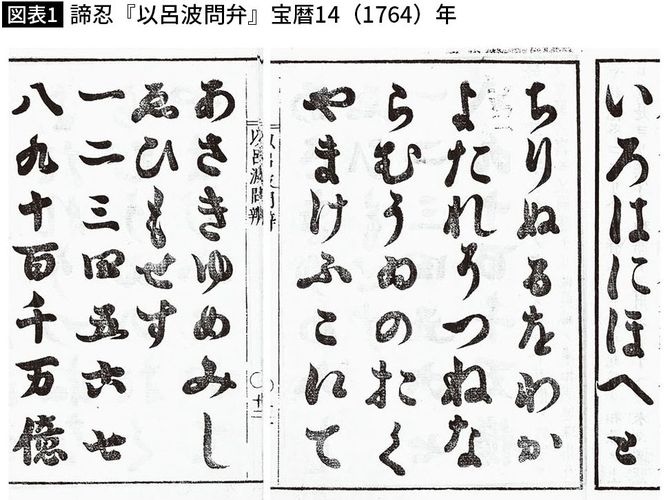 図表1 諦忍『以呂波問弁』宝暦14（1764）年
いろはにほへと
ちりぬるをわか
よたれそつねな
らむうゐのおく
やまけふこえて
以呂波問辨
〇十二
あさきゆめみし
ゑひもせす
一二三四五六七
八九十百千万億